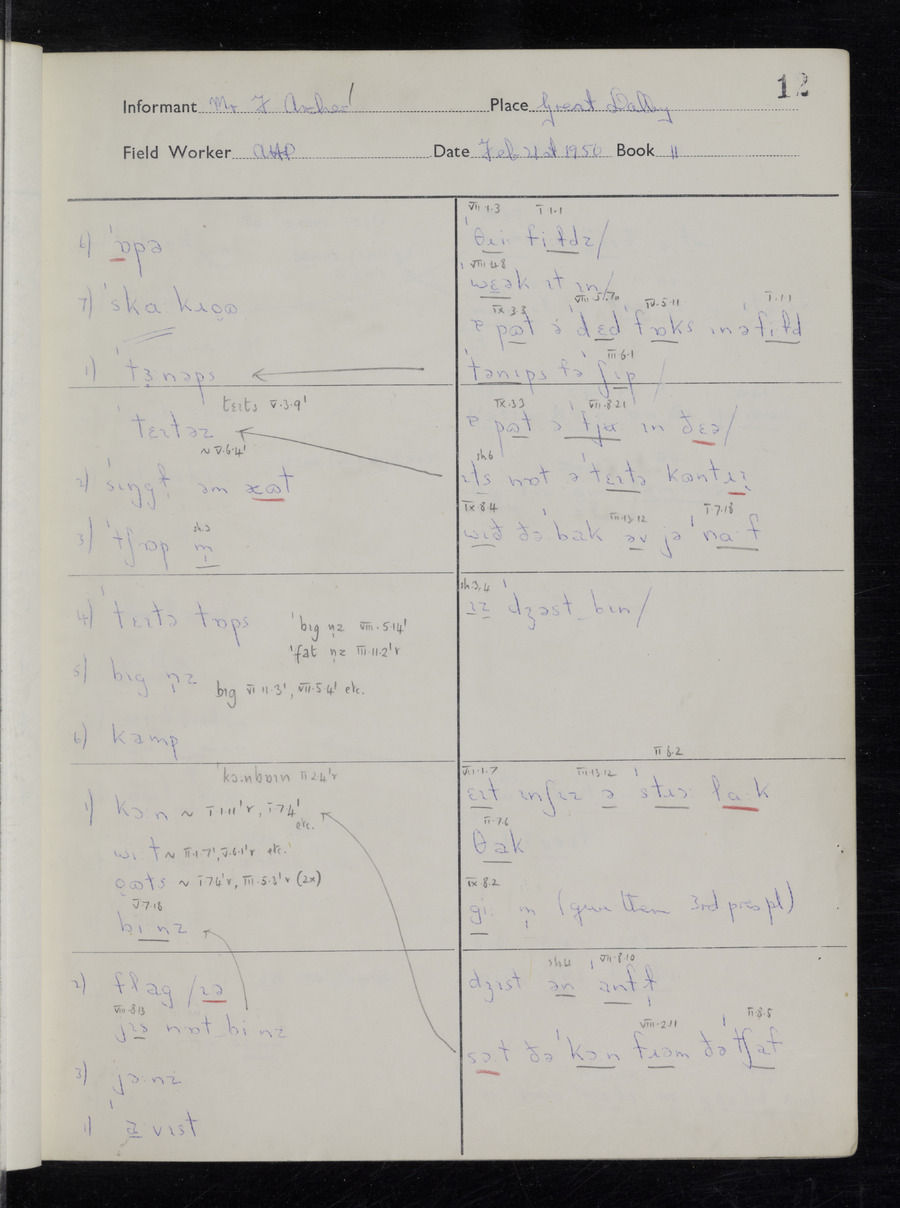 12
Informant Mr F Archer Place Great Dalby
Field Worker AHP Date Feb 21st 1950 Book II
6) ˈɒpə
7) ˈska kɹɷɷ
1) ˈtɜnəps
tɛɪtə V.3.9'
ˈtɛɪtəz
~ V.6.4'
2) ˈsɪŋgɫ əm
3) ˈtʃɒp m̩
sh.2
4) ˈtɛɪtə tɒps
ˈbɪg n̩z VIII.5.14'
ˈfat n̩z III.11.2'r
5) bɪg n̩z
bɪg VI 11.3', VII.5.4' etc.
6) kamp
ˈkɔːnbaɪn II 2.4'r
1) kɔːn ~ I.1.11'r, I 7.4' etc.
wiːt ~ II.1.7', V.6.1'r etc.
ɷɷts ~ I.7.4'r, III.5.3'r (2x)
V.7.18
biːnz
2) flag /ɪə
VIII.8.13
jɪə nɒt biːnz
3) jɔːnz
1) ˈaːvɪst
VII.1.3 I.1.1
ˈθɹiː fiːɫdz/
VIII.4.8
wɛək ɪt ɪn/
IX.3.3 VIII.5.7a IV.5.11 I.1.1
ɐ pɷt ə ˈdɛd ˈfɒks ɪn ə ˈfiːɫd
III.6.1
ˈtənɪps fə ʃɪp /
IX.3.3 VII.8.21
ɐ pɷt ə ˈfjuː ɪn ðɛə/
sh.6
ɪts nɒt ə ˈtɛɪtə kɷntɹɪ
IX.8.4 III.13.12 I.7.18
wɪð ðə ˈbak əv jə ˈnaːf
sh.3,4
ɪz dʒəst bɪn/
II 6.2
VII.1.7 III.13.12
ɛɪt ɪnʃɪz ə ˈstɹɔː laːk
II.7.6
θak
IX.8.2
giː m̩ (give them 3rd pers pl)
sh.4 VII.8.10
dʒɪst ən anfɫ̩
VIII.2.11 II.8.5
sɔːt ðə ˈkɔːn fɹəm ðə ˈtʃaf